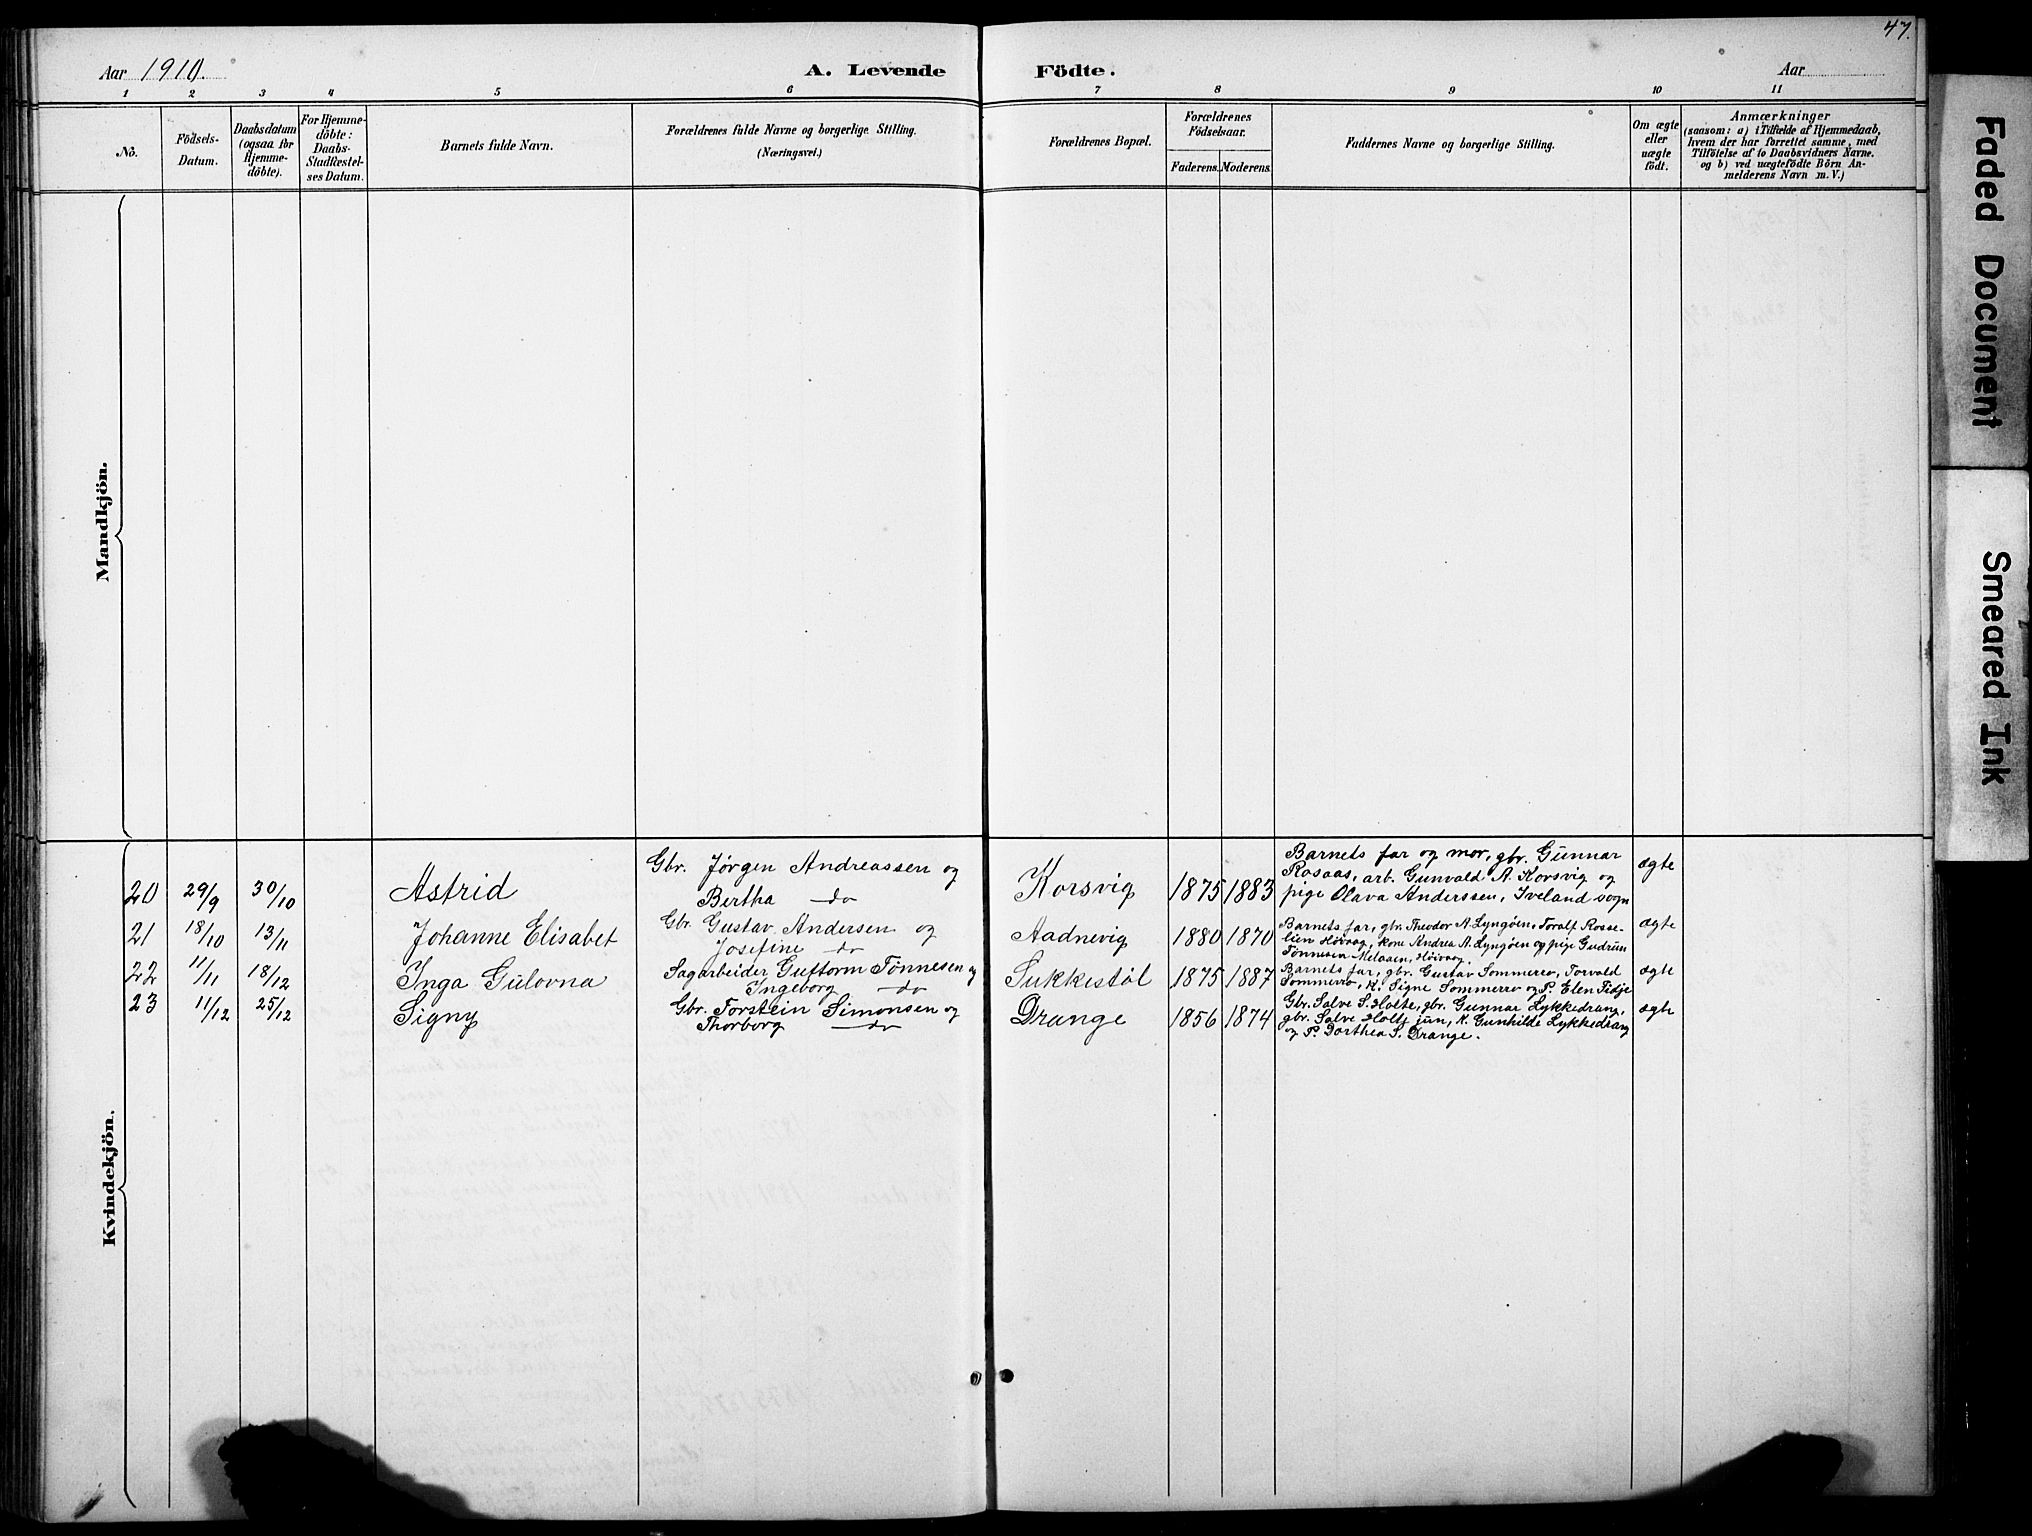 47.
Aar 1910.
A. Levende Födte.
Aar
1 2 3 4 5 6 7 8 9 10 11
No.
Födsels-
Datum.
Daabsdatum
(ogsaa for
Hjemme-
döbte).
For Hjemme-
döbte:
Daabs-
Stadfæstel-
ses Datum.
Barnets fulde Navn.
Forældrenes fulde Navne og borgerlige Stilling.
(Næringsvei.)
Forældrenes Bopæl.
Forældrenes
Födselsaar.
Faderens. Moderens.
Faddernes Navne og borgerlige Stilling.
Om ægte
eller
uægte
födt.
Anmærkninger
(saasom: a) i Tilfælde af Hjemmedaab,
hvem der har forrettet samme, med
Tilföielse af to Daabsvidners Navne.
og b) ved uægtefödte Börn An-
melderens Navn m. V.)
Mandkjön.
Kvindekjön.
20 29/9 30/10 Astrid
Gbr. Jørgen Andreassen og
Bertha do
Korsvig 1875 1883
Barnets far og mor, gbr. Gunnar
Rosaas, arb. Gunvald A. Korsvig og
pige Olava Anderssen, Iveland sogn
ægte
21 18/10 13/11 Johanne Elisabet
Gbr. Gustav Andersen og
Josefine do
Aadnevig 1880 1870
Barnets far, gbr. Theodor A. Lyngøen, Toralf Rosse-
lien Høivaag, kone Andrea A. Lyngøen og pige Gudrun
Tønnesen Melaaen, Høivaag.
ægte
22 11/11 18/12 Inga Gulovna
Sagarbeider Guttorm Tønnesen og
Ingeborg do
Sukkestøl 1875 1887
Barnets far, gbr. Gustav Sommerro, Torvald
Sommerro, K. Signe Sommerro og P. Elen Tidje
ægte
23 11/12 25/12 Signy
Gbr. Torstein Simonsen og
Thorborg do
Drange 1856 1874
Gbr. Salve S. Holte, gbr. Gunnar Lykkedrang,
gbr. Salve Holte jun, K. Gunhilde Lykkedrang
og P. Dorthea S. Drange.
ægte
Faded Document
Smeared Ink